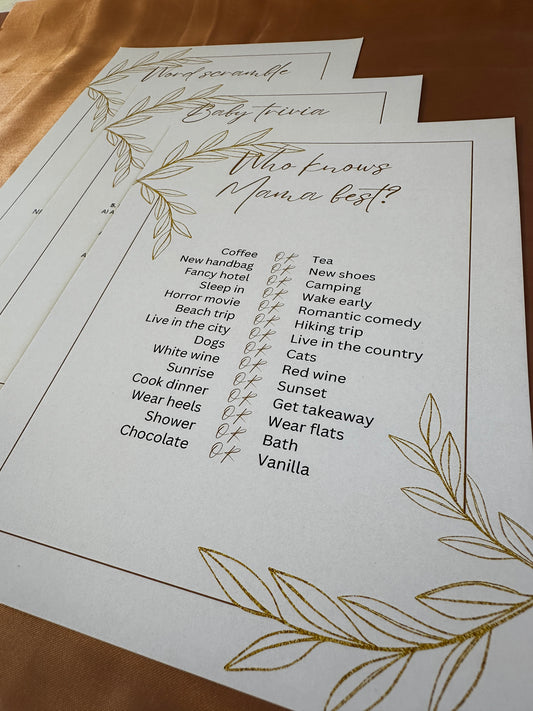 Word scramble
Baby trivia
Who knows
Mama best?
Coffee OR Tea
New handbag OR New shoes
Fancy hotel OR Camping
Sleep in OR Wake early
Horror movie OR Romantic comedy
Beach trip OR Hiking trip
Live in the city OR Live in the country
Dogs OR Cats
White wine OR Red wine
Sunrise OR Sunset
Cook dinner OR Get takeaway
Wear heels OR Wear flats
Shower OR Bath
Chocolate OR Vanilla